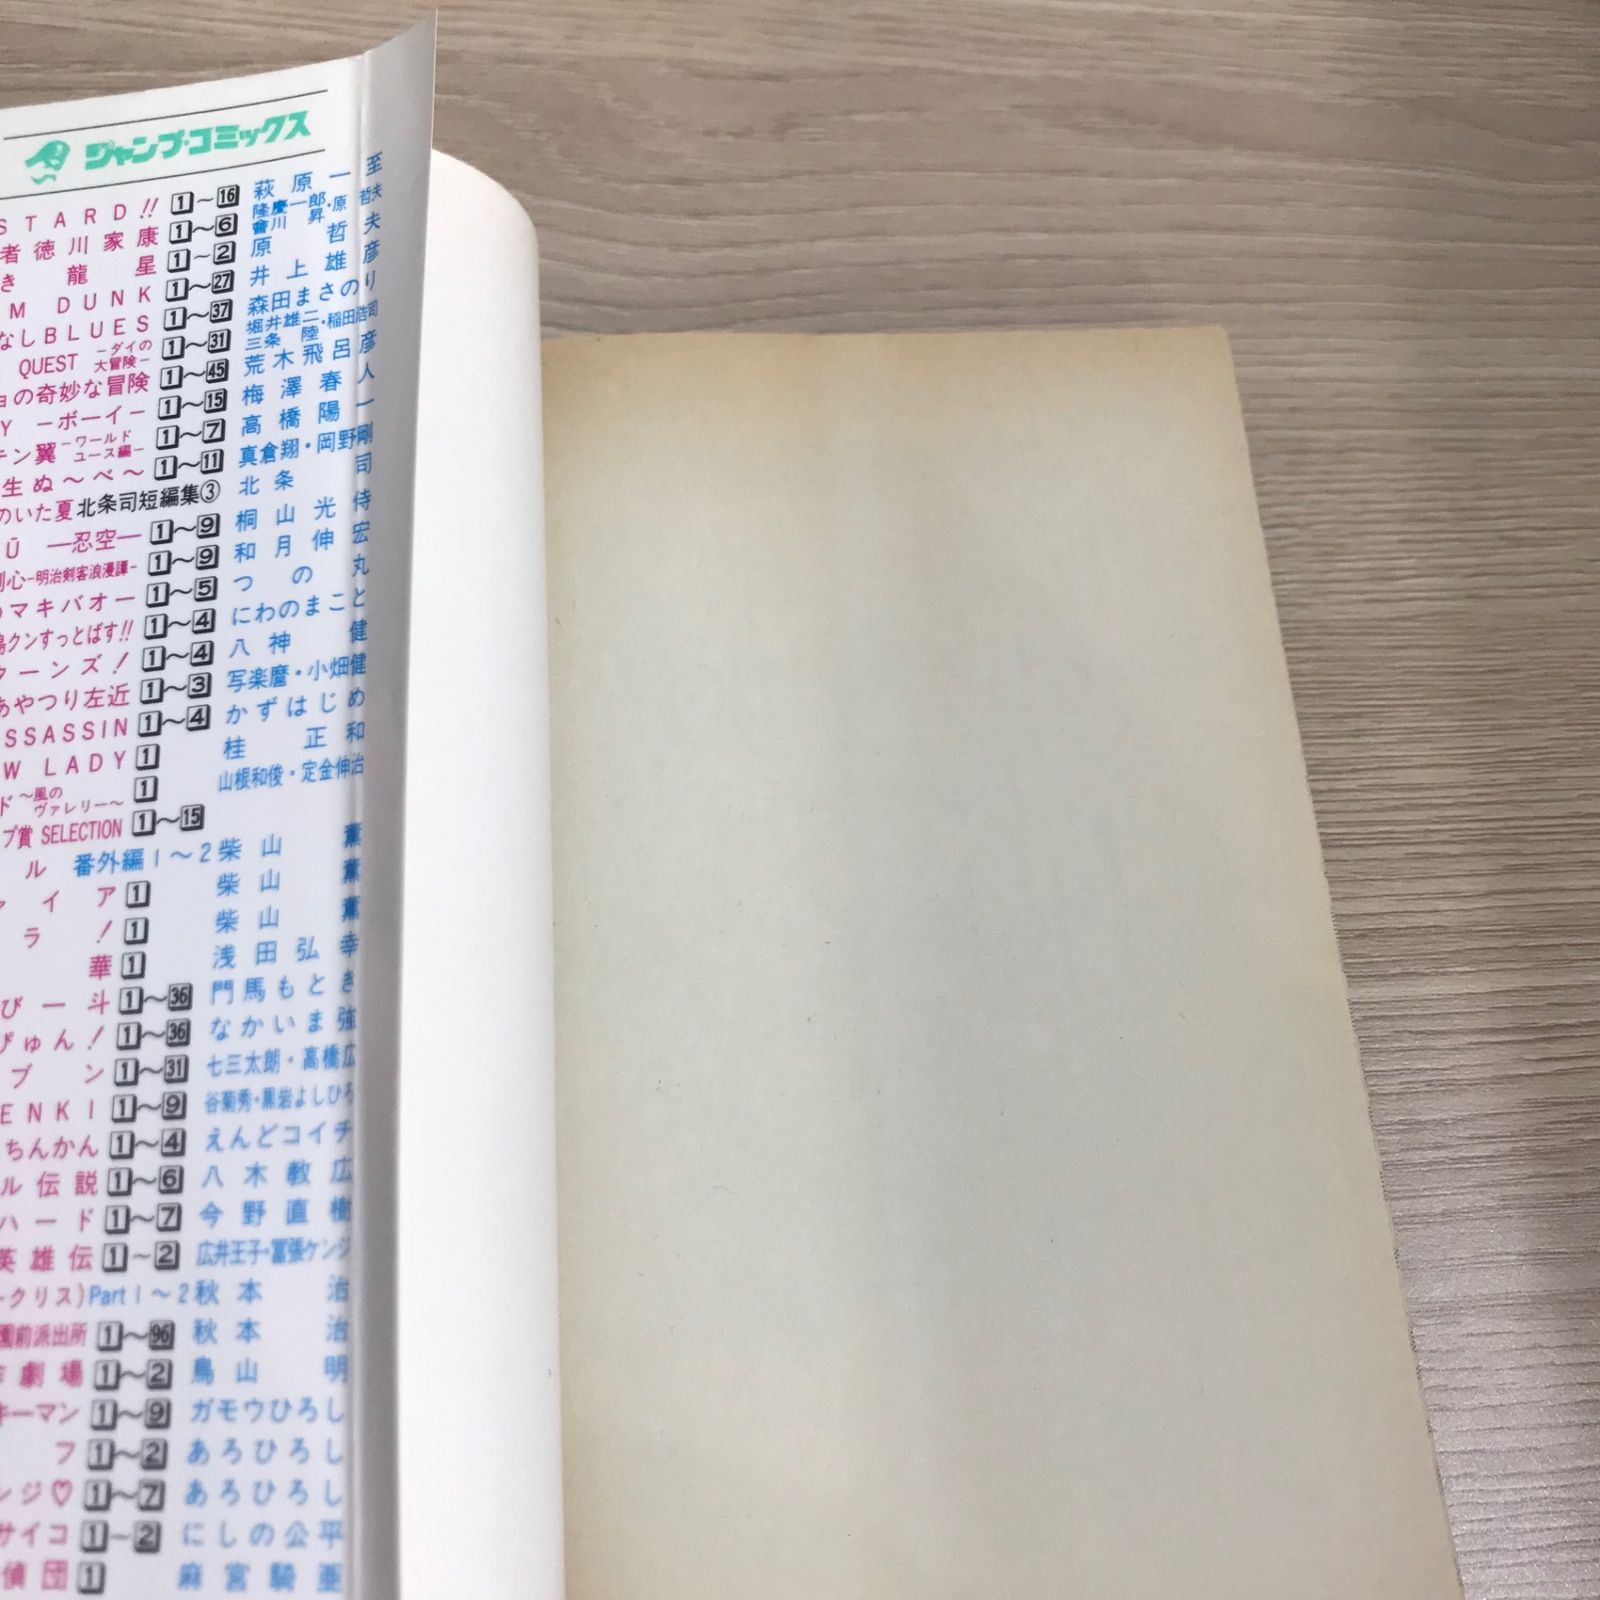 ジャンプ・コミックス
STARD!! 1～16 萩原一至
者徳川家康 1～6 隆慶一郎・原哲夫 會川昇
き龍星 1～2 原哲夫
M DUNK 1～27 井上雄彦
なしBLUES 1～37 森田まさのり
QUEST －ダイの大冒険－ 1～31 堀井雄二・稲田浩司 三条陸
ョの奇妙な冒険 1～45 荒木飛呂彦
Y －ボーイ－ 1～15 梅澤春人
テン翼 －ワールドユース編－ 1～7 高橋陽一
生ぬ～べ～ 1～11 真倉翔・岡野剛
のいた夏 北条司短編集③ 北条司
Ū ―忍空― 1～9 桐山光侍
剣心－明治剣客浪漫譚－ 1～9 和月伸宏
のマキバオー 1～5 つの丸
島クンすっとばす!! 1～4 にわのまこと
ターンズ! 1～4 八神健
あやつり左近 1～3 写楽麿・小畑健
SSASSIN 1～4 かずはじめ
W LADY 1 桂正和
ド ～風のヴァレリー～ 1 山根和俊・定金伸治
プ賞 SELECTION 1～15
ル 番外編1～2 柴山薫
ァイア 1 柴山薫
ラ! 1 柴山薫
華 1 浅田弘幸
び一斗 1～36 門馬もとき
ぴゅん! 1～36 なかいま強
ブン 1～31 七三太朗・高橋広
ENKI 1～9 谷菊秀・黒岩よしひろ
ちんかん 1～4 えんどコイチ
ル伝説 1～6 八木教広
ハード 1～7 今野直樹
英雄伝 1～2 広井王子・冨張ケンジ
・クリス)Part 1～2 秋本治
園前派出所 1～96 秋本治
作劇場 1～2 鳥山明
キーマン 1～9 ガモウひろし
フ 1～2 あろひろし
ンジ♡ 1～7 あろひろし
サイコ 1～2 にしの公平
偵団 1 麻宮騎亜